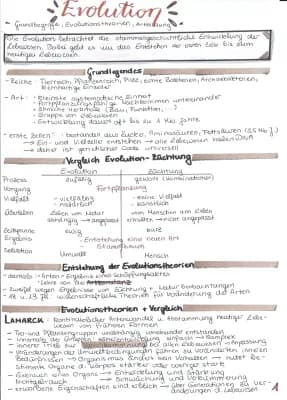 Evolution
Grundbegriffe, Evolutionstheorien, Artbildung
Die Evolution betrachtet die stammesgeschichtliche Entwicklung der
Lebewesen. Dabei geht es um das Entstehen der ersten Zelle bis zum
heutigen Lebewesen.
Grundlegendes
- Reiche: Tierreich, Pflanzenreich, Pilze, echte Bakterien, Archaebakterien,
Einzeller
- Art: kleinste systematische Einheit
fortpflanzungsfähige Nachkommen untereinander
ähnliche Merkmale (Bau, Funktion, ...)
Gruppe von Lebewesen
Entwicklung dauert oft bis zu 1 Mio. Jahre
- erste Zellen: bestanden aus Zucker, Aminosäuren, Fettsäuren
→ Ein- und Vielzeller entstehen → alle Lebewesen haben DNA
→ daher ist genetischer Code universell
Vergleich Evolution - Züchtung
Evolution Züchtung
Prozess zufällig gewollt
Vorgang Fortpflanzung
Vielfalt - vielfältig - keine Vielfalt
- natürlich - künstlich
Überleben Leben von Natur von Menschen am Leben
abhängig → angepasst erhalten → nicht angepasst
Zeitspanne ewig kurz
Ergebnis Entstehung einer neuen Art
Selektion Umwelt Mensch
Entstehung der Evolutionstheorien
- damals: Arten = Ergebnis eines Schöpfungsaktes
Lehre von der Artkonstanz
- Zweifel wegen Ergebnissen von Züchtung + Naturbeobachtungen
- 18. + 19. Jh.: wissenschaftliche Theorien für Veränderung der Arten
Evolutionstheorien + Vergleich
LAMARCK: kontinuierlicher Artenwandel + Abstammung heutiger Lebe-
wesen von früheren Formen
- Tier- und Pflanzengruppen unabhängig voneinander entstanden
- innerhalb der Gruppen: einfach → komplex
- innerer Trieb zur der Lebewesen → Anpassung
- Veränderungen der Umweltbedingungen führen zu veränderten inneren
Bedürfnissen → Organismus ändert sein Verhalten → nutzt be-
stimmte Organe d. Körpers stärker oder weniger stark
- Gebrauch eines Organs → Entwicklung und Stärkung
Nichtgebrauch → Schwächung und Verkümmerung
- erworbene Eigenschaften sind erblich → über Generationen zu Ver-
änderungen d. Lebewesen
1